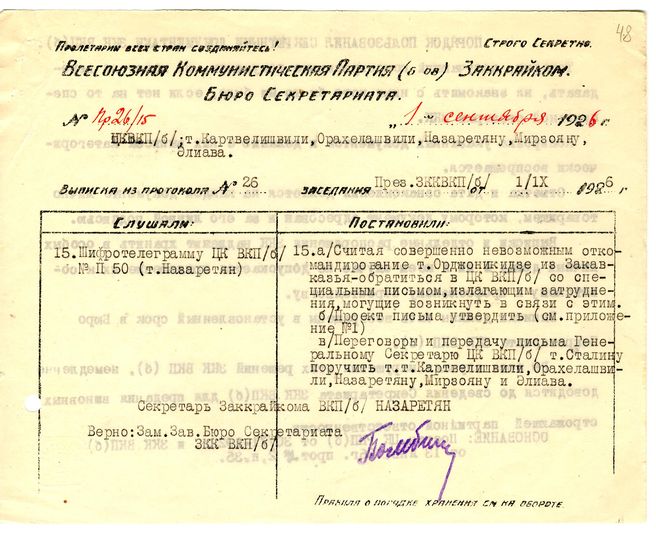 48
Пролетарии всех стран соединяйтесь! Строго Секретно.
Всесоюзная Коммунистическая Партия (б-ов) Заккрайком.
Бюро Секретариата.
№ Пр.26/15 „1" сентября 1926 г
ЦКВКП/б/,т.Картвелишвили,Орахелашвили,Назаретяну,Мирзояну,
Элиава.
Выписка из протокола № 26 заседания През.ЗККВКП/б/ от 1/IX 1926 г
Слушали: Постановили:
15.Шифротелеграмму ЦК ВКП/б/
№ П 50 (т.Назаретян)
15.а/Считая совершенно невозможным отко-
мандирование т.Орджоникидзе из Закав-
казья-обратиться в ЦК ВКП/б/ со спе-
циальным письмом,излагающим затрудне-
ния,могущие возникнуть в связи с этим.
б/Проект письма утвердить (см.приложе-
ние №1)
в/Переговоры и передачу письма Гене-
ральному Секретарю ЦК ВКП/б/ т.Сталину
поручить т.т.Картвелишвили,Орахелашви-
ли,Назаретяну,Мирзояну и Элиава.
Секретарь Заккрайкома ВКП/б/ НАЗАРЕТЯН
Верно:Зам.Зав.Бюро Секретариата
ЗКК ВКП/б/
Правила о порядке хранения см на обороте.